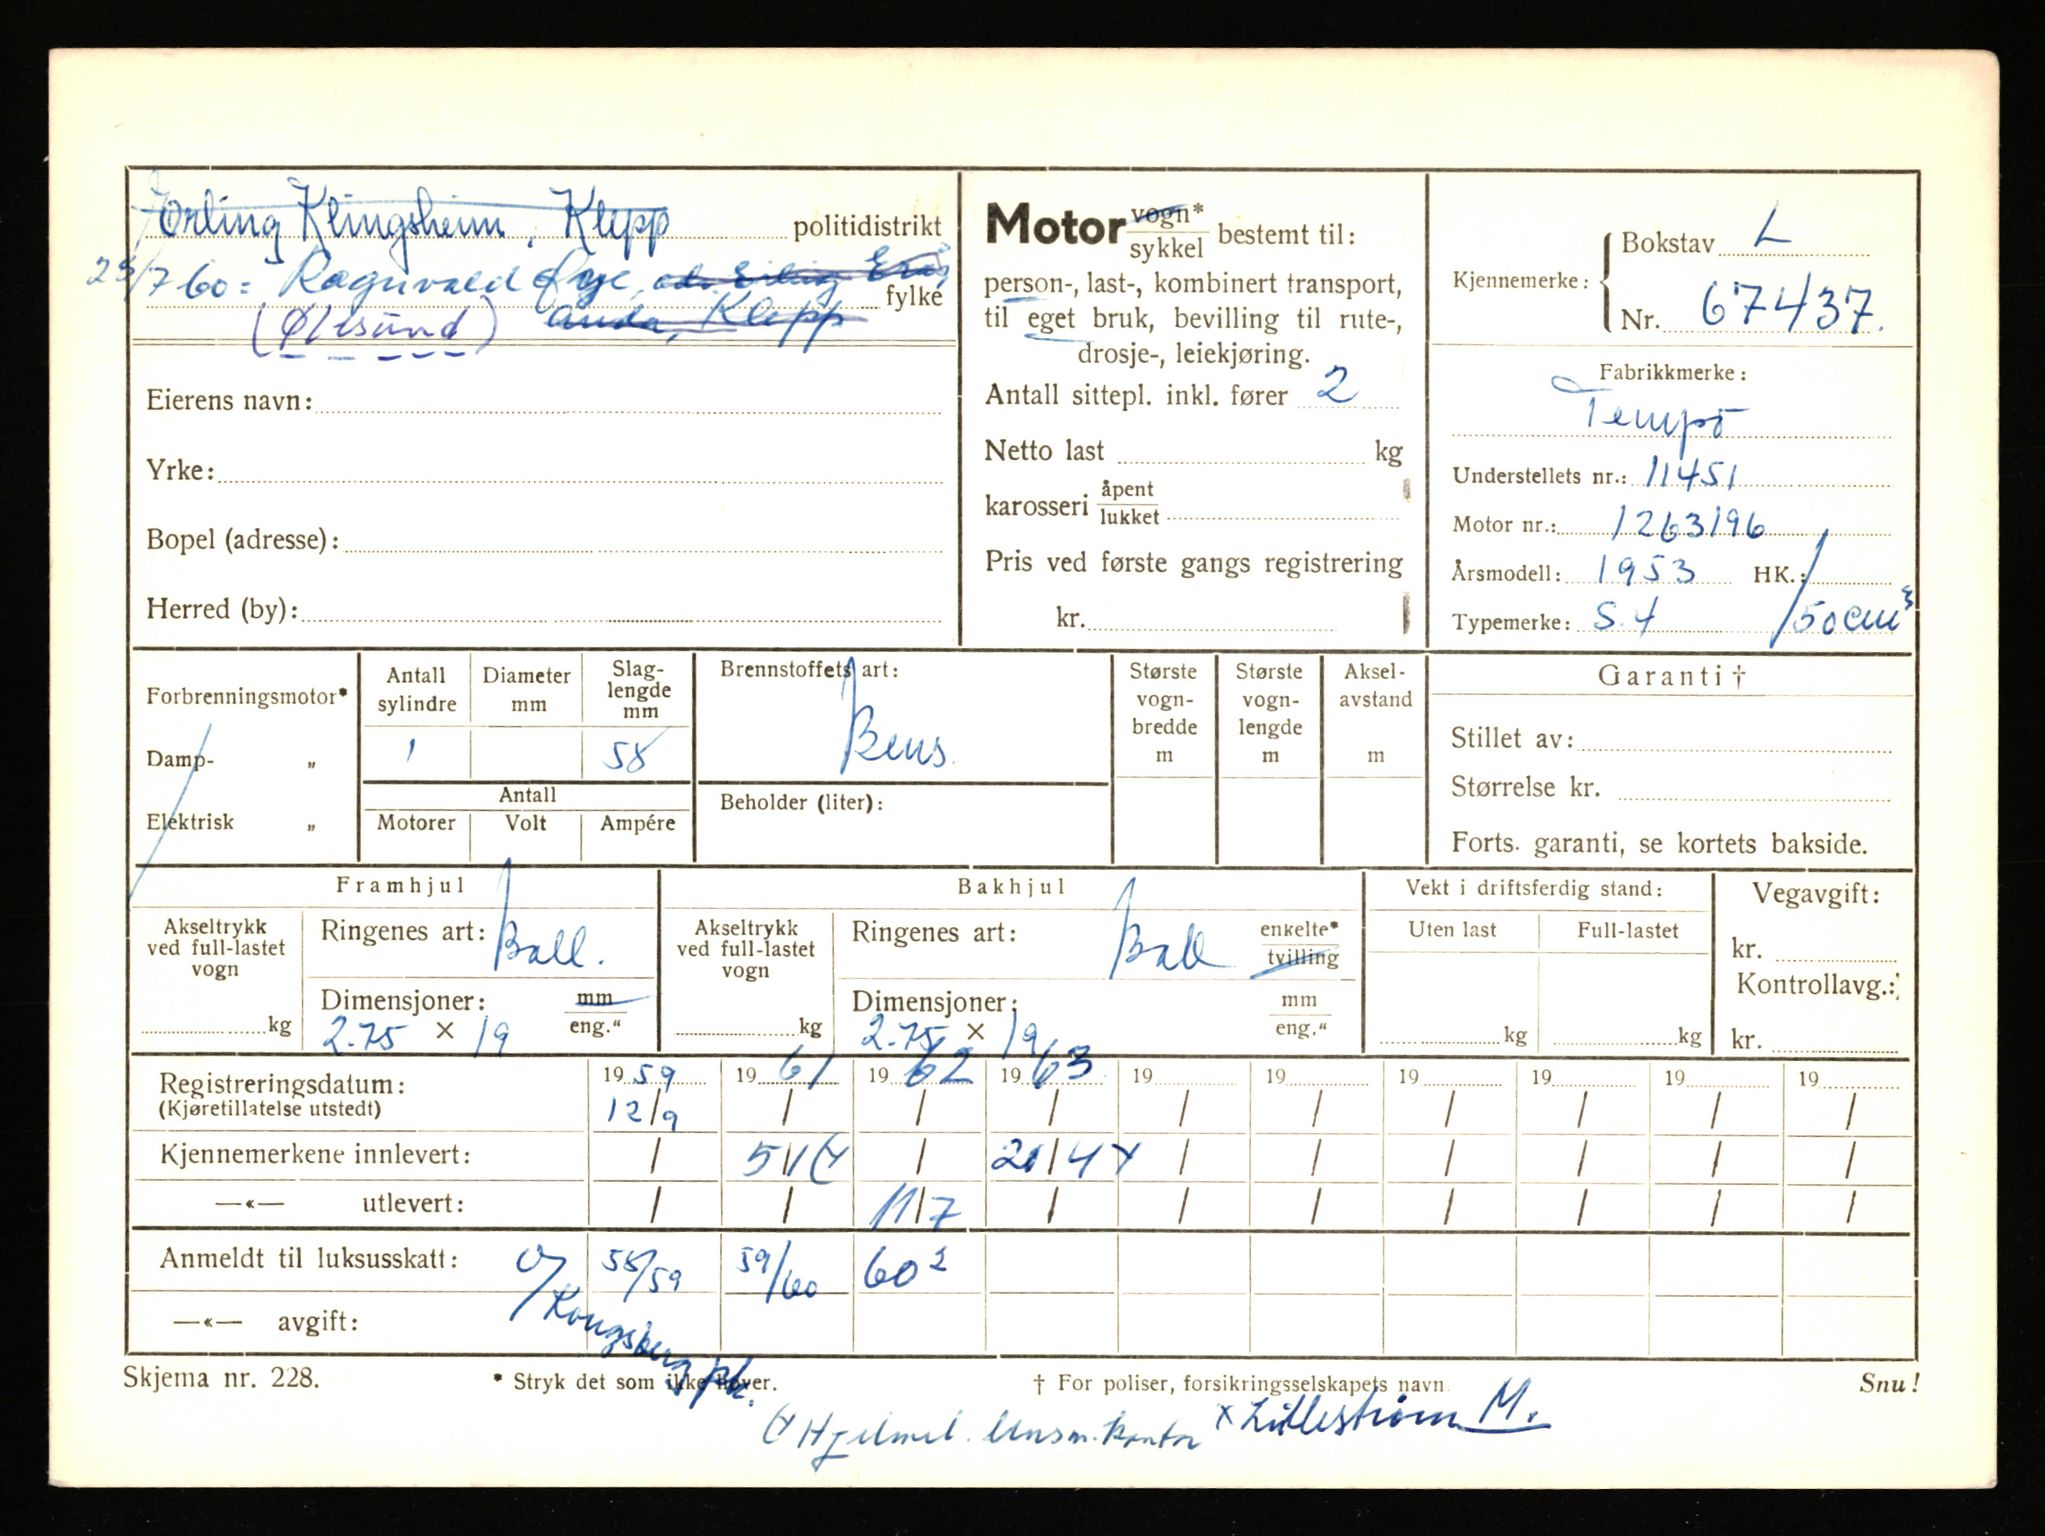 Erling Klingsheim, Klepp politidistrikt
23/7 60: Ragnvald Øye, adr. Erling fylke
(Ølesund) Anda, Klepp
Eierens navn:
Yrke:
Bopel (adresse):
Herred (by):
Motor vogn* / sykkel bestemt til:
person-, last-, kombinert transport,
til eget bruk, bevilling til rute-,
drosje-, leiekjøring.
Antall sittepl. inkl. fører 2
Netto last kg
karosseri åpent / lukket
Pris ved første gangs registrering
kr.
Kjennemerke: Bokstav L
Nr. 67437.
Fabrikkmerke:
Tempo
Understellets nr.: 11451
Motor nr.: 1263196
Årsmodell: 1953 HK.:
Typemerke: S.4 / 50 cm³
Forbrenningsmotor*
Damp- „
Elektrisk „
Antall sylindre Diameter mm Slag-lengde mm
1 58
Antall
Motorer Volt Ampére
Brennstoffets art:
Bens.
Beholder (liter):
Største vogn-bredde m
Største vogn-lengde m
Aksel-avstand m
Garanti †
Stillet av:
Størrelse kr.
Forts. garanti, se kortets bakside.
Framhjul
Akseltrykk ved full-lastet vogn kg
Ringenes art: Ball.
Dimensjoner: mm / eng."
2.75 × 19
Bakhjul
Akseltrykk ved full-lastet vogn kg
Ringenes art: Ball enkelte* / tvilling
Dimensjoner: mm / eng."
2.75 × 19
Vekt i driftsferdig stand:
Uten last Full-lastet
kg kg
Vegavgift:
kr.
Kontrollavg.:
kr.
Registreringsdatum: 19 59 19 61 19 62 19 63 19 19 19 19 19 19
(Kjøretillatelse utstedt) 12/9 / / / / / / / / /
Kjennemerkene innlevert: / 5/ / 21/4 x / / / / / /
—«— utlevert: / / 11/7 / / / / / / /
Anmeldt til luksusskatt: 58/59 59/60 60²
—«— avgift:
Kongsberg pk.
Skjema nr. 228. * Stryk det som ikke høver. † For poliser, forsikringsselskapets navn Snu!
x Lillestrøm M.